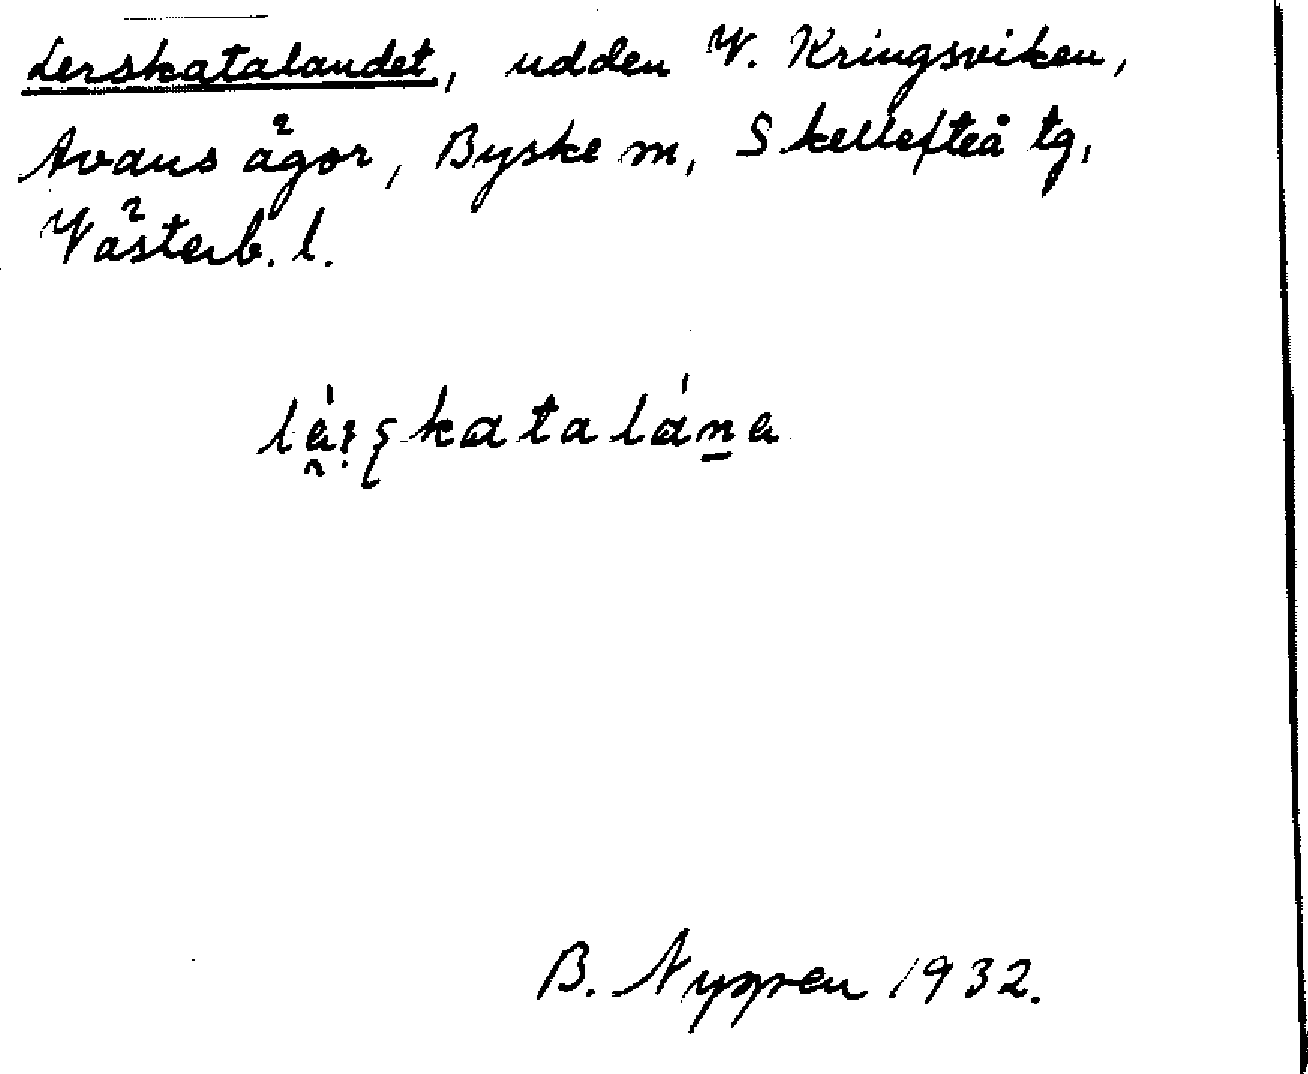 Lerskatalandet, udden V. Kringsviken,
Avans ägor, Byske m, Skellefteå tg,
Västerb. l.
B. Nygren 1932.